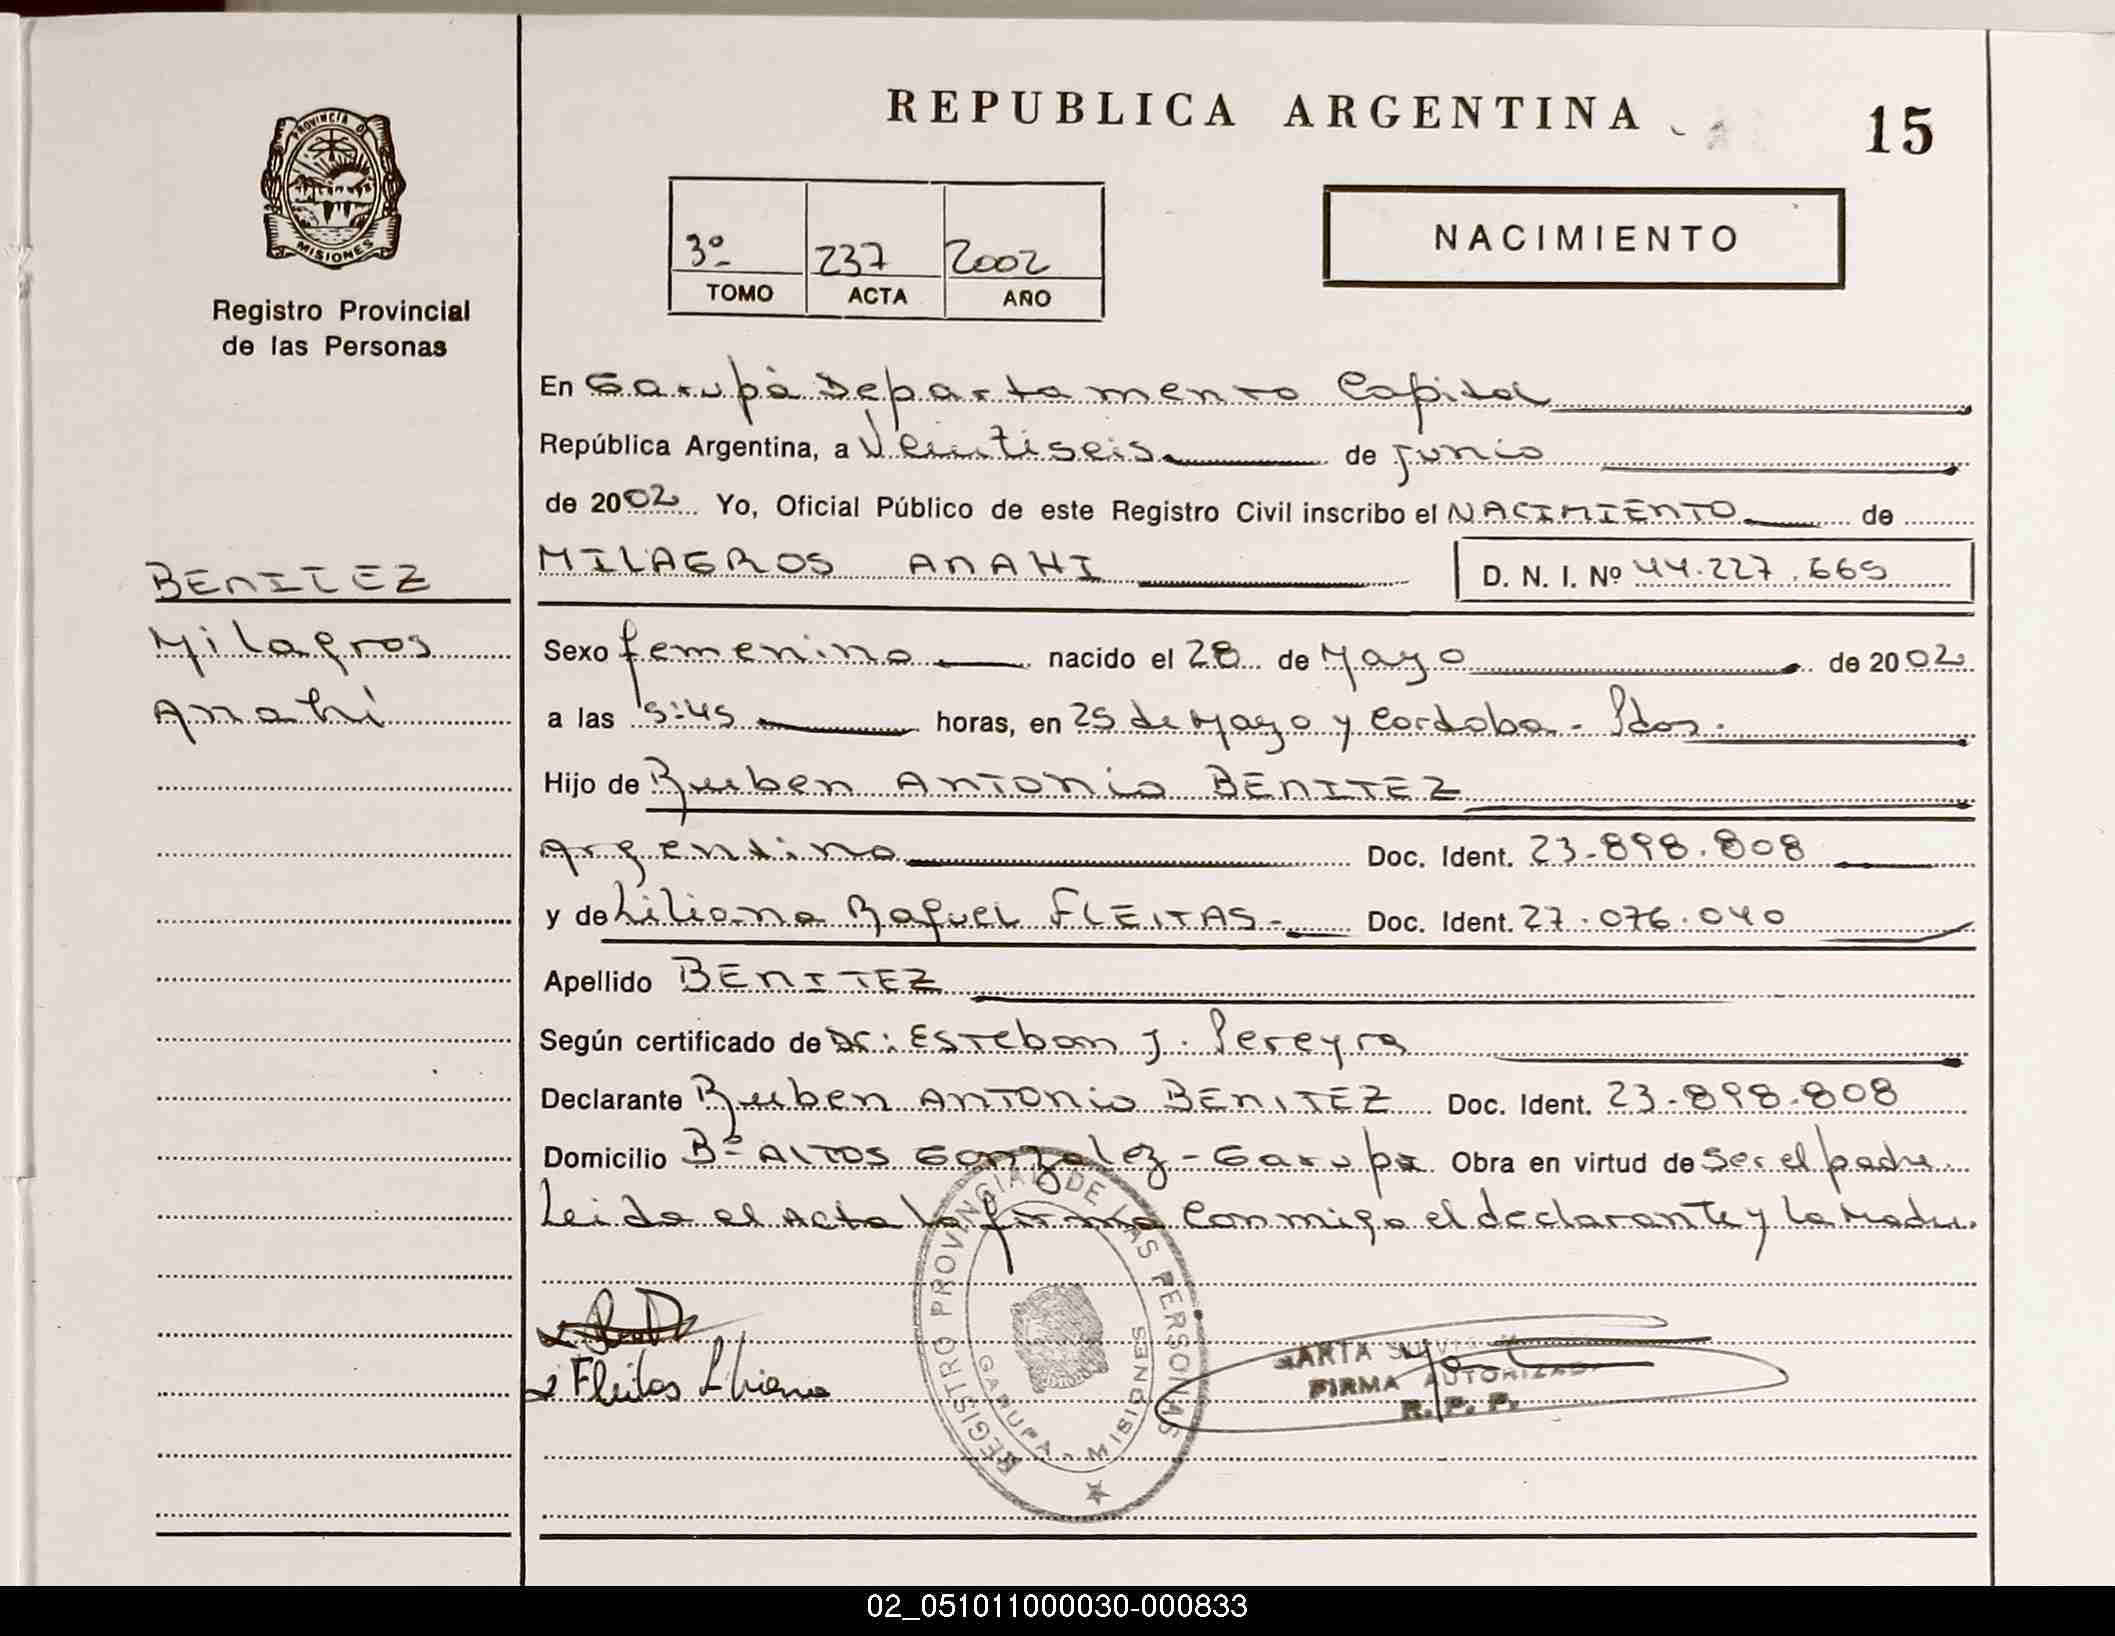 REPUBLICA ARGENTINA
15
PROVINCIA D
MISIONES
Registro Provincial
de las Personas
3º
237
2002
TOMO
ACTA
AÑO
NACIMIENTO
En Garupá Departamento Capital
República Argentina, a Veintiseis de junio
de 2002 Yo, Oficial Público de este Registro Civil inscribo el NACIMIENTO de
MILAGROS ANAHI
D. N. I. Nº 44.227.665
BENITEZ
Milagros
Anahí
Sexo femenino nacido el 28 de Mayo de 2002
a las 5:45 horas, en 25 de Mayo y Cordoba - Pdas.
Hijo de Ruben ANTONIO BENITEZ
Argentino Doc. Ident. 23.898.808
y de Liliana Raquel FLEITAS- Doc. Ident. 27.076.040
Apellido BENITEZ
Según certificado de Dr: Esteban J. Pereyra
Declarante Ruben ANTONIO BENITEZ Doc. Ident. 23.898.808
Domicilio Bº ALTOS Gonzalez - Garupa Obra en virtud de Ser el padre.
Leida el Acta la firma conmigo el declarante y la Madre.
Fleitas Liliana
REGISTRO PROVINCIAL DE LAS PERSONAS
GARUPA - MISIONES
FIRMA AUTORIZADA
R. P. P.
02_051011000030-000833